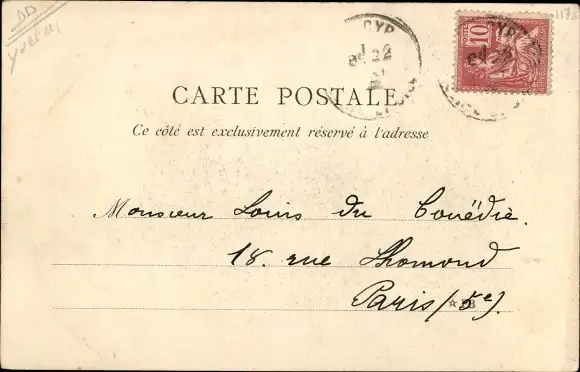 DD
117
10
CYR
CYR
CARTE POSTALE
Ce côté est exclusivement réservé à l'adresse
Monsieur Louis du Couëdic.
18. rue Lhomond
Paris (5e).